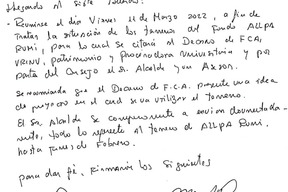 llegando al siste
- Reunirse el día Viernes 11 de Marzo 2022, a fin de
tratar la situación de los terrenos del fundo ALLPA
RUMI, para lo cual se citará al Decano de FCA,
VRINV, Patrimonio y Procuradora Universitaria y por
parte del Consejo el Sr. Alcalde y un Asesor.
Se recomienda que el Decano de F.C.A. presente una idea
de proyecto en el cual se va utilizar el terreno.
El Sr. Alcalde se compromete a enviar documentada-
mente, todo lo respecto al terreno de ALLPA RUMI,
hasta fines de Febrero.
para dar fé, firmamos los siguientes